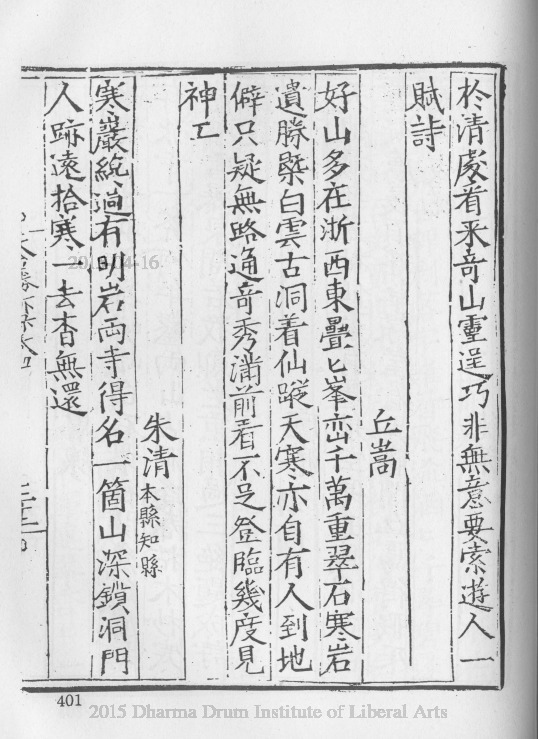 於清處着釆竒山靈逞巧非無意要索遊人一
賦詩
丘嵩
好山多在浙西東疊匕峯巒千萬重翠石寒岩
遺勝槩白雲古洞着仙蹤天寒亦自有人到地
僻只疑無路通竒秀滿前看不足登臨幾度見
神工
朱清本縣知縣
寒巖繞過有明岩両寺得名一箇山深鎖洞門
人跡遠拾寒一去杳無還
401
2015 Dharma Drum Institute of Liberal Arts